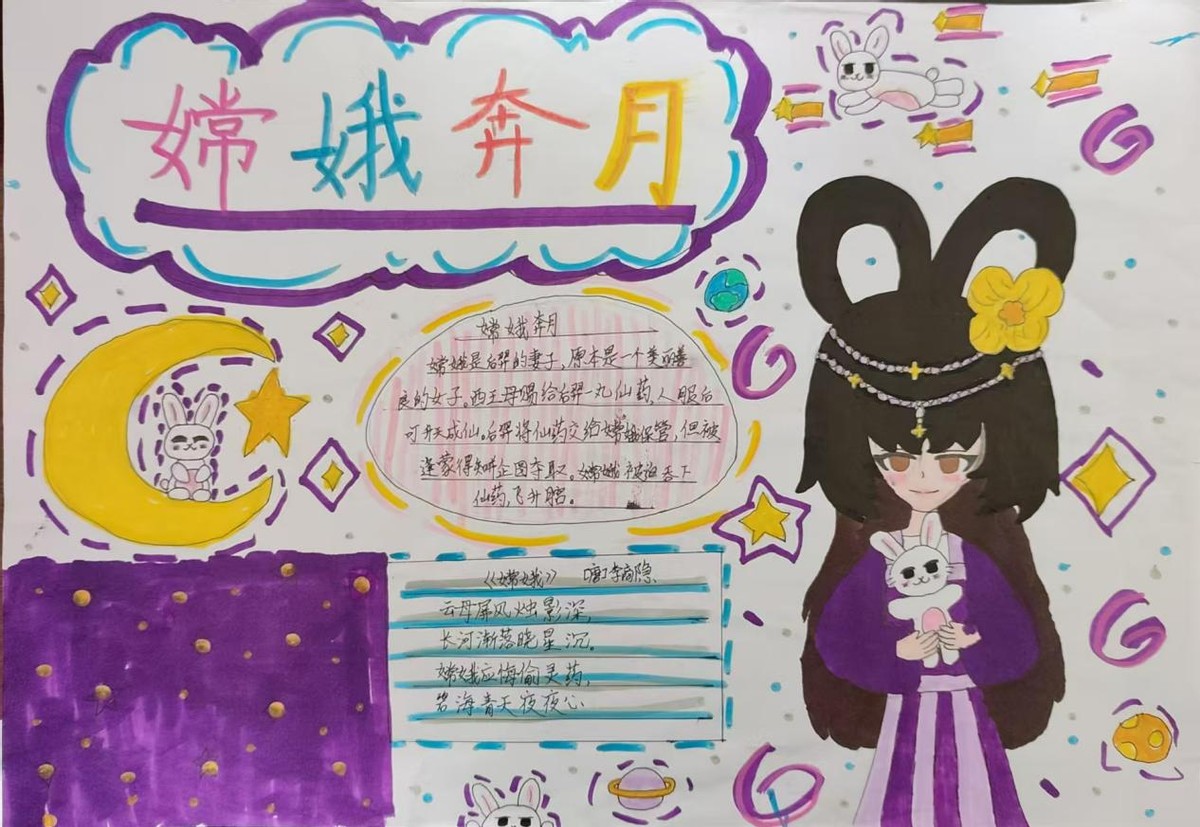 嫦娥奔月
嫦娥奔月
嫦娥是后羿的妻子，原本是一个美丽善
良的女子。西王母赐给后羿一丸仙药，人服后
可升天成仙。后羿将仙药交给嫦娥保管，但被
逢蒙得知，企图夺取。嫦娥被迫吞下
仙药，飞升
《嫦娥》 [唐]李商隐
云母屏风烛影深，
长河渐落晓星沉。
嫦娥应悔偷灵药，
碧海青天夜夜心